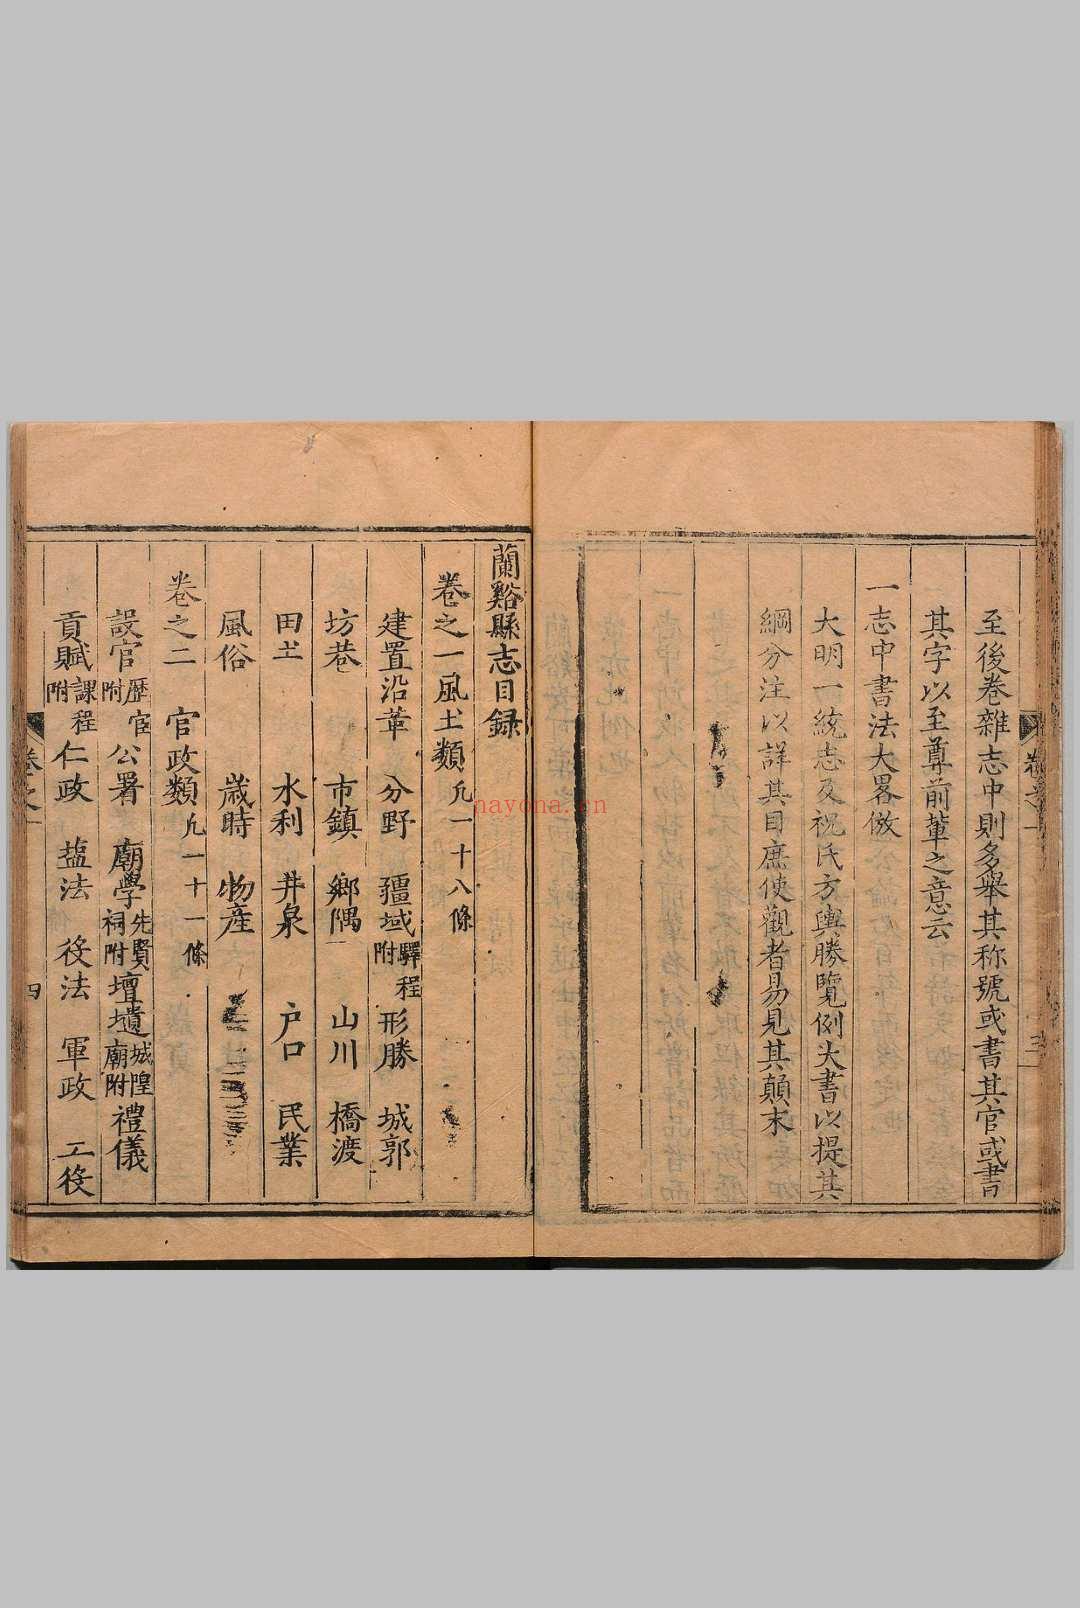 至後卷雜志中則多舉其称號或書其官或書
其字以至尊前軰之意云
一志中書法大畧倣
大明一統志及祝氏方輿勝覽例大書以提其
綱分注以詳其目庶使觀者易見其顛末
蘭谿縣志目録
卷之一風土類凢一十八條
建置沿革 分野 疆域驛程附 形勝 城郭
坊巷 市鎮 鄉隅 山川 橋渡
田土 水利 井泉 户口 民業
風俗 歳時 物産
卷之二 官政類凢一十一條
設官歷官附 公署 廟學先賢祠附 壇壝城隍廟附 禮儀
貢賦課程附 仁政 塩法 役法 軍政 工役
卷之一
四
nayona.cn